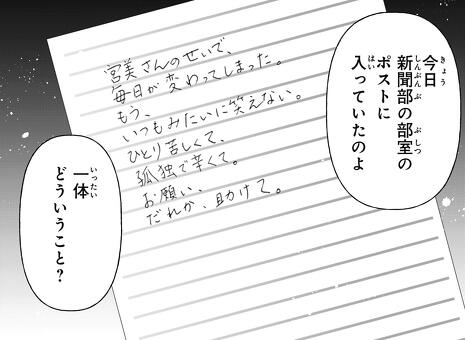 今日
新聞部の部室の
ポストに
入っていたのよ
きょう
しんぶんぶ
ぶしつ
はい
宮美さんのせいで、
毎日が変わってしまった。
もう、
いつもみたいに笑えない。
ひとり苦しくて、
孤独で辛くて。
お願い、
だれか、助けて。
一体
どういうこと?
いったい